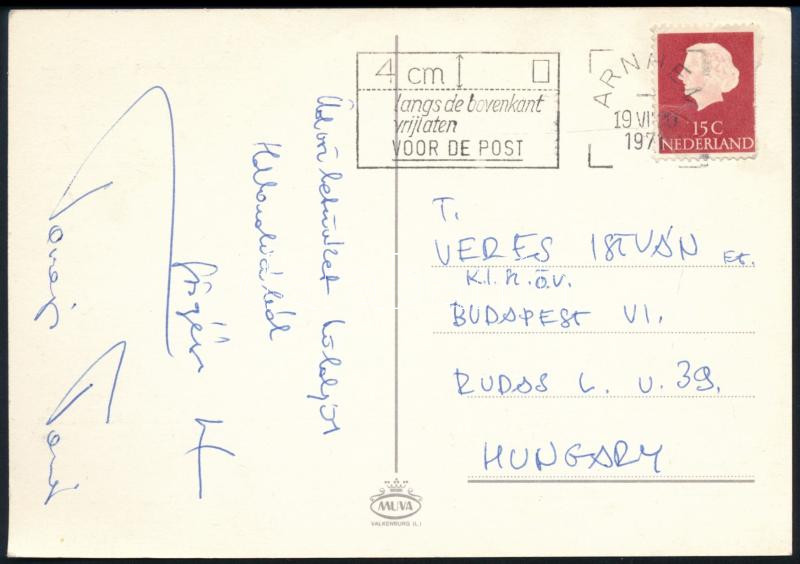 Üdvözletünket küldjük
Hollandiából
4 cm
langs de bovenkant
vrijlaten
VOOR DE POST
ARNHEM
19 VI
197
15 C
NEDERLAND
T.
VERES ISTVÁN et.
K.I.K. ÖV.
BUDAPEST VI.
RUDAS L. U. 39.
HUNGARY
MUVA
VALKENBURG (L.)